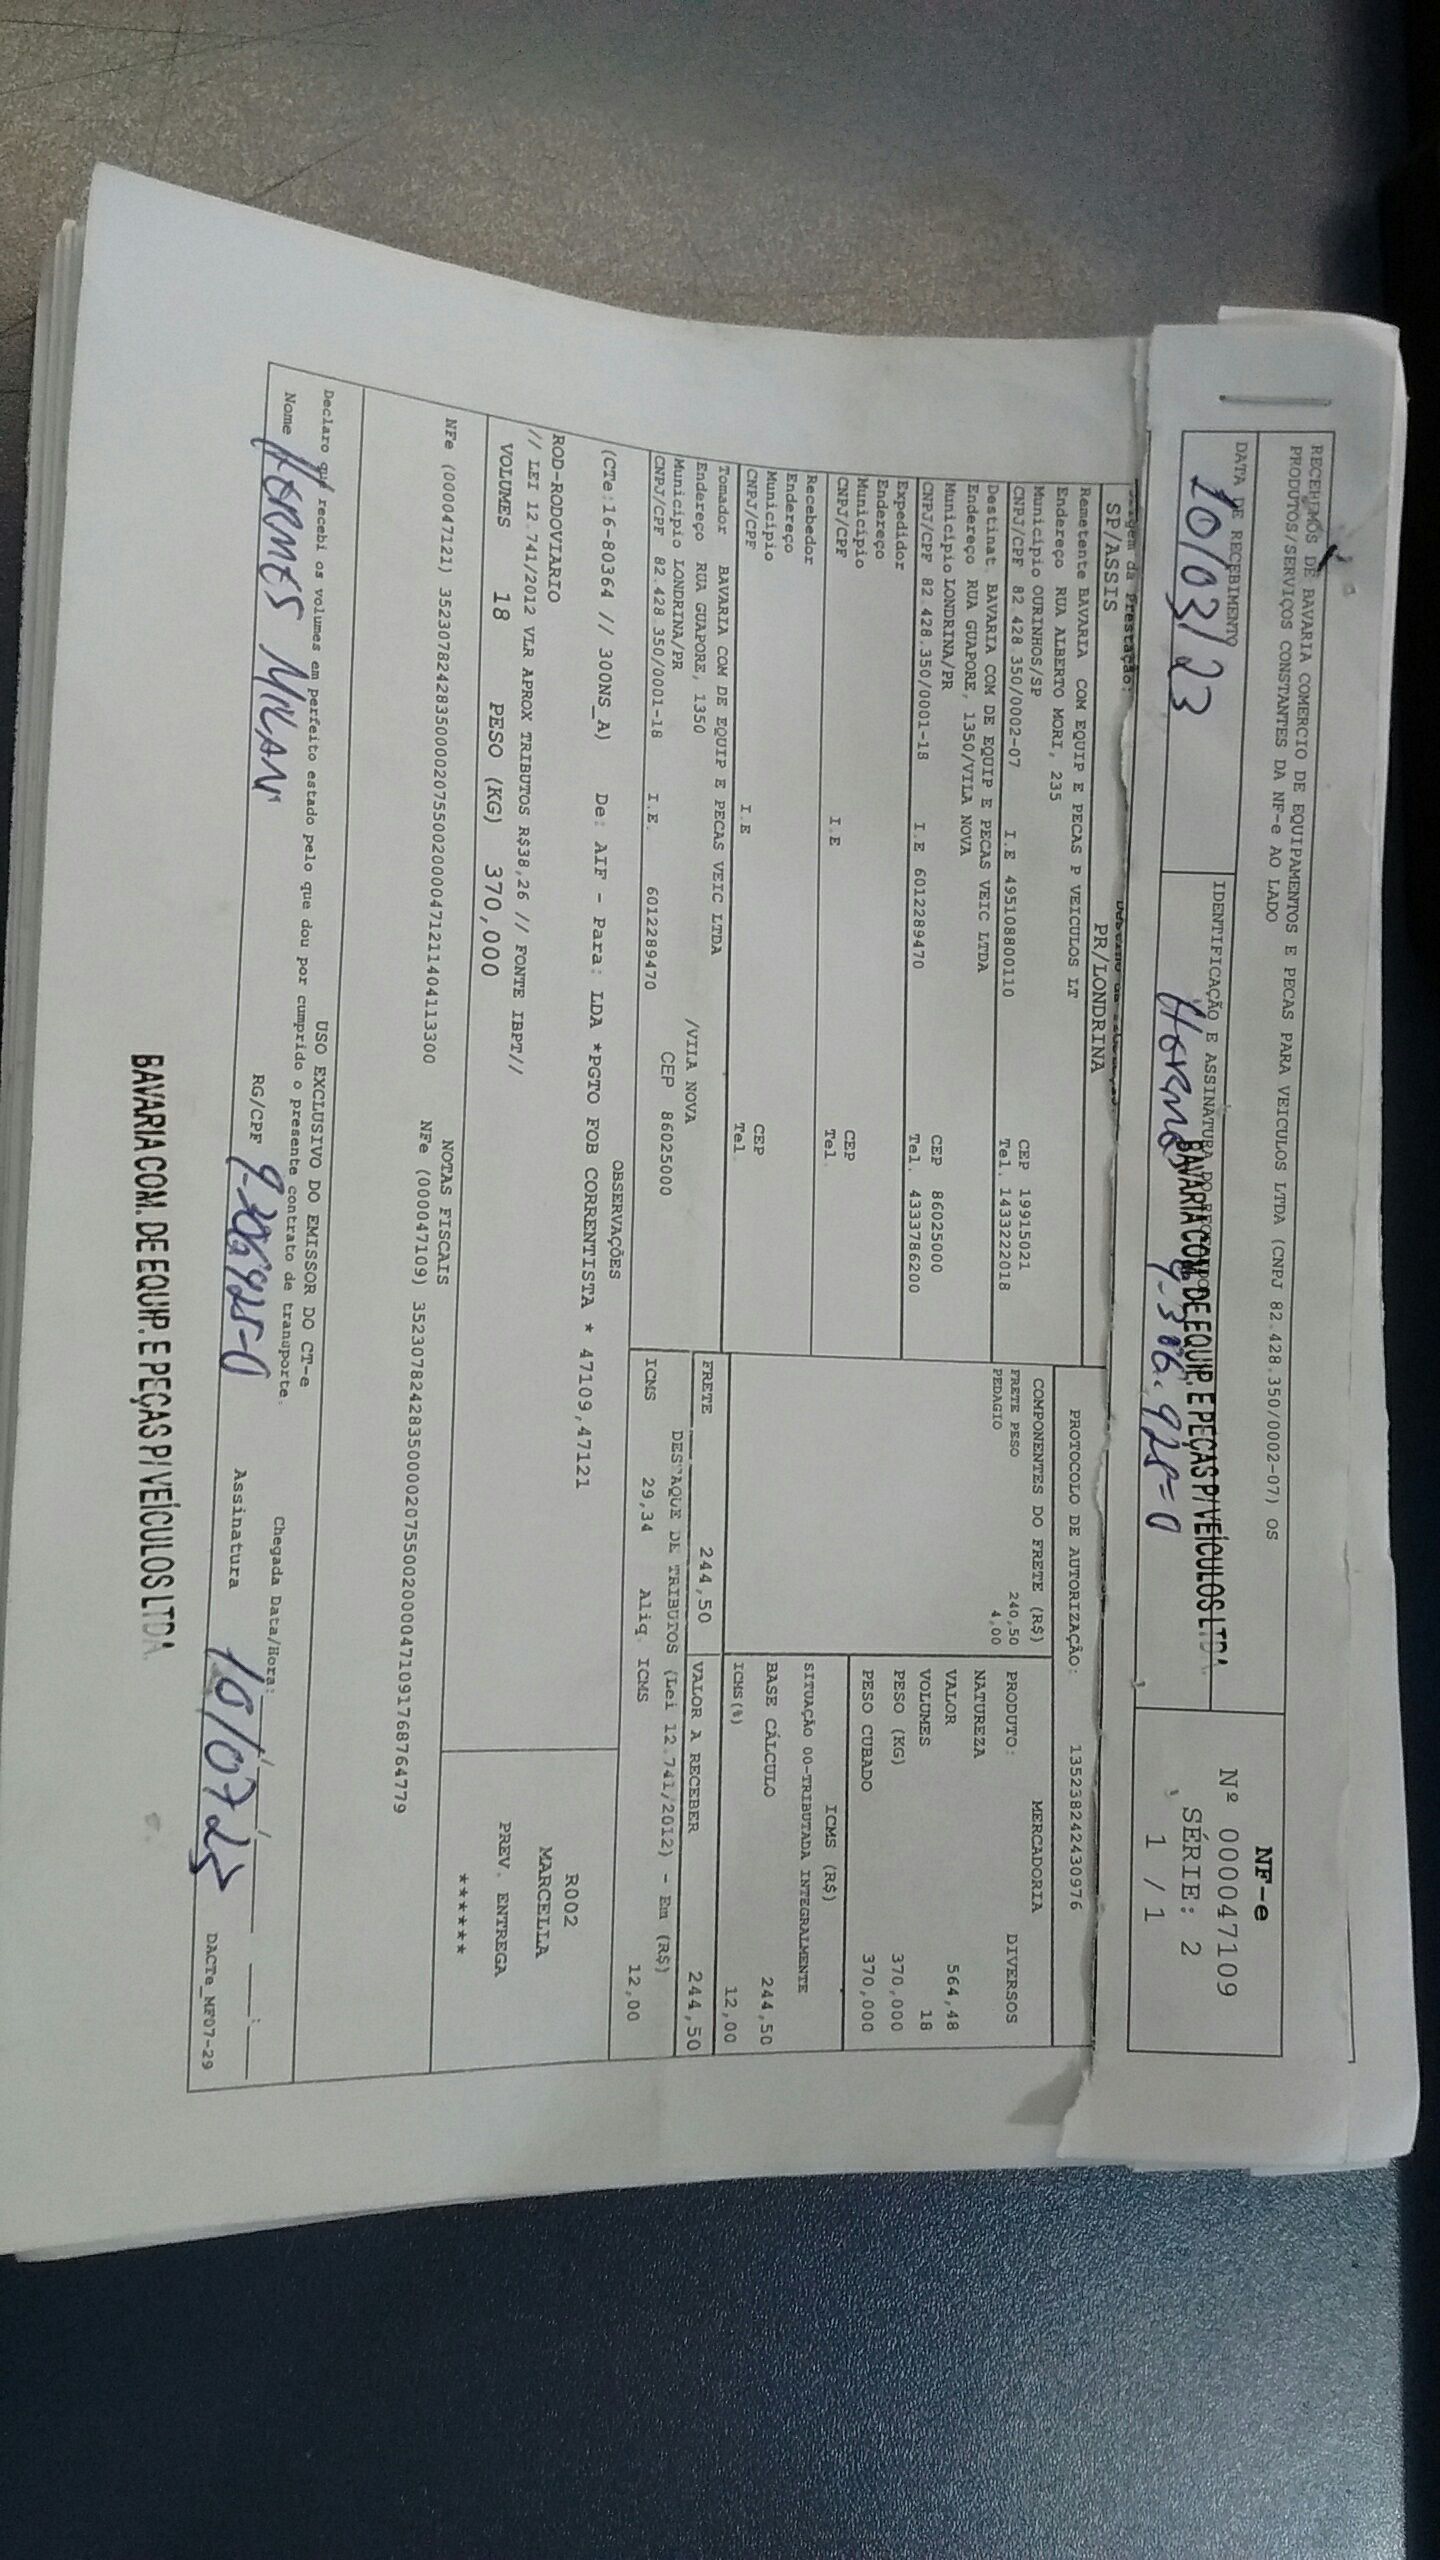 RECEBEMOS DE BAVARIA COMERCIO DE EQUIPAMENTOS E PECAS PARA VEICULOS LTDA (CNPJ 82.428.350/0002-07) OS
PRODUTOS/SERVIÇOS CONSTANTES DA NF-e AO LADO
DATA DE RECEBIMENTO
10/03/23
IDENTIFICAÇÃO E ASSINATURA DO
BAVARIA COM. DE EQUIP. E PEÇAS P/ VEÍCULOS LTDA.
9.306.925-0
NF-e
Nº 000047109
SÉRIE: 2
1 / 1
da Prestação:
SP/ASSIS
PR/LONDRINA
Remetente BAVARIA COM EQUIP E PECAS P VEICULOS LT
Endereço RUA ALBERTO MORI, 235
Município OURINHOS/SP CEP 19915021
CNPJ/CPF 82.428.350/0002-07 I.E 495108800110 Tel. 1433222018
Destinat. BAVARIA COM DE EQUIP E PECAS VEIC LTDA
Endereço RUA GUAPORE, 1350/VILA NOVA
Município LONDRINA/PR CEP 86025000
CNPJ/CPF 82.428.350/0001-18 I.E 6012289470 Tel. 4333786200
Expedidor
Endereço
Município CEP
CNPJ/CPF I.E Tel.
Recebedor
Endereço
Município CEP
CNPJ/CPF I.E Tel.
Tomador BAVARIA COM DE EQUIP E PECAS VEIC LTDA
Endereço RUA GUAPORE, 1350 /VILA NOVA
Município LONDRINA/PR CEP 86025000
CNPJ/CPF 82.428.350/0001-18 I.E. 6012289470
PROTOCOLO DE AUTORIZAÇÃO: 135238242430976
COMPONENTES DO FRETE (R$)
FRETE PESO 240,50
PEDAGIO 4,00
MERCADORIA
PRODUTO: DIVERSOS
NATUREZA
VALOR 564,48
VOLUMES 18
PESO (KG) 370,000
PESO CUBADO 370,000
ICMS (R$)
SITUAÇÃO 00-TRIBUTADA INTEGRALMENTE
BASE CÁLCULO 244,50
ICMS(%) 12,00
FRETE 244,50
VALOR A RECEBER 244,50
DESTAQUE DE TRIBUTOS (Lei 12.741/2012) - Em (R$)
ICMS 29,34 Aliq. ICMS 12,00
OBSERVAÇÕES
(CTe:16-80364 // 300NS_A) De: AIF - Para: LDA *PGTO FOB CORRENTISTA * 47109,47121
ROD-RODOVIARIO
// LEI 12.741/2012 VLR APROX TRIBUTOS R$38,26 // FONTE IBPT//
VOLUMES 18 PESO (KG) 370,000
R002
MARCELLA
PREV. ENTREGA
*******
NOTAS FISCAIS
NFe (000047121) 35230782428350000207550020000471211404113300 NFe (000047109) 35230782428350000207550020000471091768764779
USO EXCLUSIVO DO EMISSOR DO CT-e
Declaro que recebi os volumes em perfeito estado pelo que dou por cumprido o presente contrato de transporte.
Chegada Data/Hora: __/__/__ __:__
Nome HERMES MILANI RG/CPF Assinatura 10/07 23
DACTe_MF07-29
BAVARIA COM. DE EQUIP. E PEÇAS P/ VEÍCULOS LTDA.